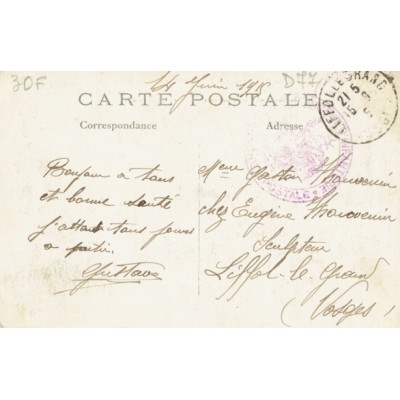 30F
14 Juin 1918
D77
CARTE POSTALE
Correspondance
Adresse
LIFFOL LE GRAND
21 5
Bonjour à tous
et bonne santé
j'attend tous jours
a partir.
Gustave
Mme Gaston Thouvenin
chez Eugène Thouvenin
Sculpteur
Liffol-le-Grand
(Vosges)
POSTALE